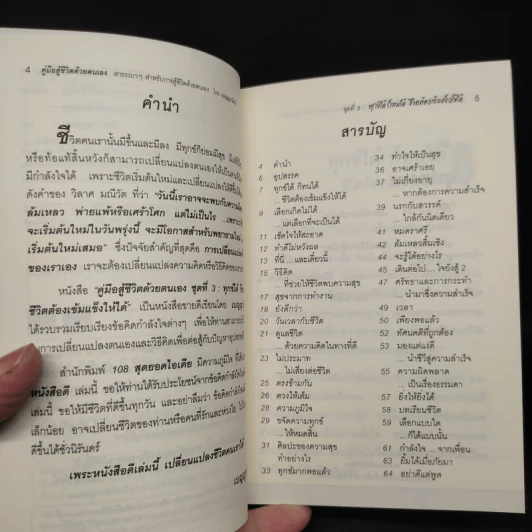 4 คู่มือสู้ชีวิตด้วยตนเอง สาระเบาๆ สำหรับการสู้ชีวิตด้วยตนเอง
คำนำ
ชีวิตคนเรานั้นมีขึ้นและมีลง มีทุกข์ก็ย่อมมีสุข
หรือท้อแท้สิ้นหวังก็สามารถเปลี่ยนแปลงตนเองให้เป็น
มีกำลังใจได้ เพราะชีวิตเริ่มต้นใหม่และเปลี่ยนแปลงได้
ดังคำของ วิลาศ มณีวัต ที่ว่า "วันนี้เราอาจจะพบกับความ
ล้มเหลว พ่ายแพ้หรือเศร้าโศก แต่ไม่เป็นไร ...เพราะ
จะเริ่มต้นใหม่ในวันพรุ่งนี้ จะมีโอกาสสำหรับพยายาม
เริ่มต้นใหม่เสมอ" ซึ่งปัจจัยสำคัญที่สุดคือ การเปลี่ยน
ของเราเอง เราจะต้องเปลี่ยนแปลงความคิดหรือวิธีคิด
หนังสือ "คู่มือสู้ชีวิตด้วยตนเอง ชุดที่ 3 : ทุกข์ได้
ชีวิตต้องเข้มแข็งให้ได้" เป็นหนังสือขายดีเขียนโดย
ได้รวบรวมเรียบเรียงข้อคิดกำลังใจต่างๆ เพื่อให้ท่านสามารถ
การเปลี่ยนแปลงตนเองและวิธีคิดเพื่อต่อสู้กับปัญหา
สำนักพิมพ์ 108 สุดยอดไอเดีย มีความภูมิใจ
หนังสือดี เล่มนี้ ขอให้ท่านได้รับประโยชน์จากข้อคิดกำลังใจ
เล่มนี้ ขอให้มีชีวิตที่ดีขึ้นทุกวัน และอย่าลืมว่า ข้อคิด
เล็กน้อย อาจเปลี่ยนชีวิตของท่านหรือคนที่รักและห่วงใย
ดีขึ้นได้ชั่วนิรันดร์
เพราะหนังสือดีเล่มนี้ เปลี่ยนแปลงชีวิตคนเราได้
ชุดที่ 3 : ทุกข์ได้ ก็ทนได้ ชีวิตต้องเข้มแข็งให้ได้ 5
สารบัญ
4 คำนำ
6 อุปสรรค
7 ทุกข์ได้ ก็ทนได้
ชีวิตต้องเข้มแข็งให้ได้
9 เลือกเกิดไม่ได้
...แต่เลือกที่จะเป็นได้
11 เช็ดใจให้สะอาด
12 ทำดีไม่หวังผล
13 ที่นี่ ...และเดี๋ยวนี้
15 วิธีคิด
...ที่ช่วยให้ชีวิตพบความสุข
17 สุขจากการทำงาน
18 ยังดีกว่า
20 วันเวลากับชีวิต
21 ดูแลชีวิต
...ด้วยความคิดในทางที่ดี
23 ไม่ประมาท
...ไม่เสี่ยงต่อชีวิต
25 ตรงข้ามกัน
26 ตวงให้เต็ม
28 ความภูมิใจ
29 ขจัดความทุกข์
...ให้หมดสิ้น
31 ศิลปะของความสุข
ทำอย่างไร
33 ทุกข์มากพอแล้ว
34 ทำใจให้เป็นสุข
36 อาจเศร้าเอย
37 ไม่เกี่ยงอายุ
...หากต้องการความสำเร็จ
39 นรกกับสวรรค์
...ใกล้กันนิดเดียว
41 หมดราศี
42 ล้มเหลวสิ้นเชิง
44 จะรู้ได้อย่างไร
45 เดินต่อไป ...ใจยังสู้ 2
47 ศรัทธาและการกระทำ
...นำมาซึ่งความสำเร็จ
49 เวลา
50 เพียงพอแล้ว
52 ทัศนคติที่ถูกต้อง
53 มองแต่แง่ดี
...นำชีวิตสู่ความสำเร็จ
55 ความผิดพลาด
...เป็นเรื่องธรรมดา
57 ยิ่งให้ยิ่งได้
58 บทเรียนชีวิต
59 เลือกแบบใด
...ก็ได้แบบนั้น
61 กำลังใจ ...จากเพื่อน
63 ยิ้มได้เมื่อภัยมา
64 อย่าดีแต่พูด